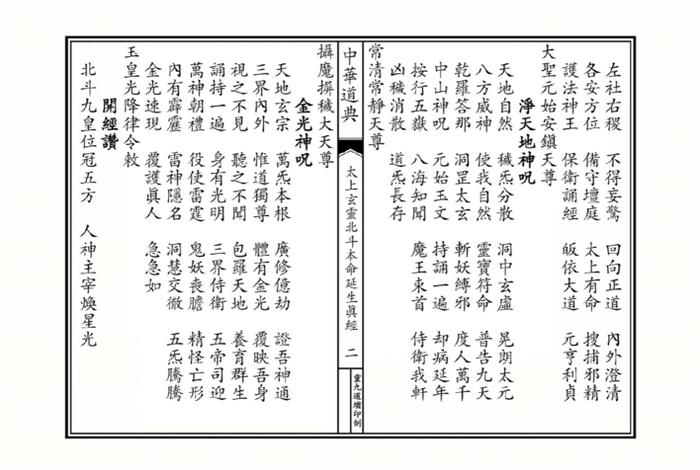 左社右稷　不得妄驚　回向正道　內外澄清
各安方位　備守壇庭　太上有命　搜捕邪精
護法神王　保衛誦經　皈依大道　元亨利貞
大聖元始安鎮天尊
淨天地神呪
天地自然　穢炁分散　洞中玄虛　晃朗太元
八方威神　使我自然　靈寶符命　普告九天
乾羅答那　洞罡太玄　斬妖縛邪　度人萬千
中山神呪　元始玉文　持誦一遍　却病延年
按行五嶽　八海知聞　魔王束首　侍衛我軒
凶穢消散　道炁長存
常清常靜天尊
中華道典
太上玄靈北斗本命延生眞經
二
重九道壇印制
攝魔摒穢大天尊
金光神呪
天地玄宗　萬炁本根　廣修億劫　證吾神通
三界內外　惟道獨尊　體有金光　覆映吾身
視之不見　聽之不聞　包羅天地　養育群生
誦持一遍　身有光明　三界侍衛　五帝司迎
萬神朝禮　役使雷霆　鬼妖喪膽　精怪亡形
內有霹靂　雷神隱名　洞慧交徹　五炁騰騰
金光速現　覆護眞人　急急如
玉皇光降律令敕
開經讚
北斗九皇位冠五方　人神主宰煥星光